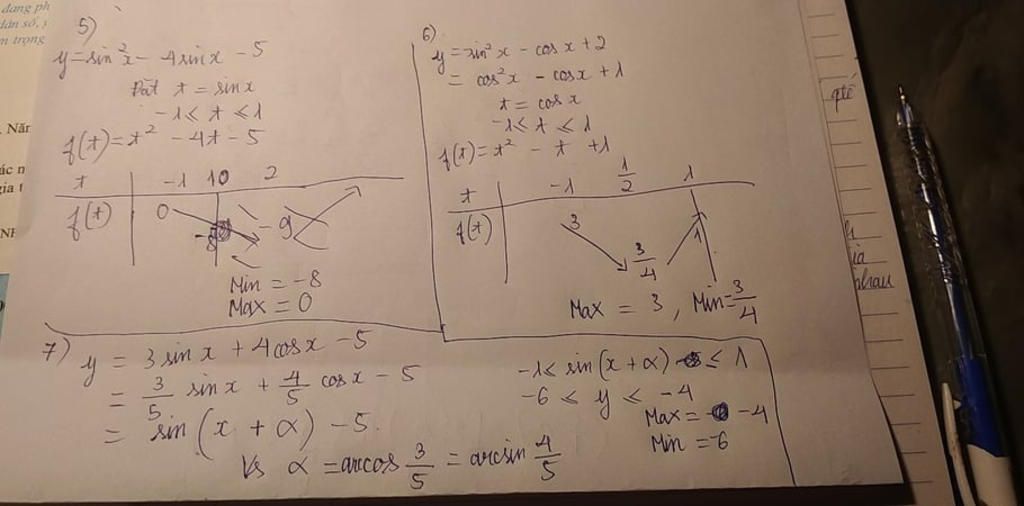 5)
y = sin²x - 4sinx - 5
Đặt t = sinx
-1 ≤ t ≤ 1
f(t) = t² - 4t - 5
t -1 1 2
f(t) 0 -8 -9
Min = -8
Max = 0
6)
y = sin²x - cosx + 2
= cos²x - cosx + 1
t = cosx
-1 ≤ t ≤ 1
f(t) = t² - t + 1
t -1 1/2 1
f(t) 3 3/4 1
Max = 3, Min = 3/4
7) y = 3sinx + 4cosx - 5
= 3/5 sinx + 4/5 cosx - 5
= sin(x + α) - 5
Vs α = arccos 3/5 = arcsin 4/5
-1 ≤ sin(x + α) ≤ 1
-6 ≤ y ≤ -4
Max = -4
Min = -6